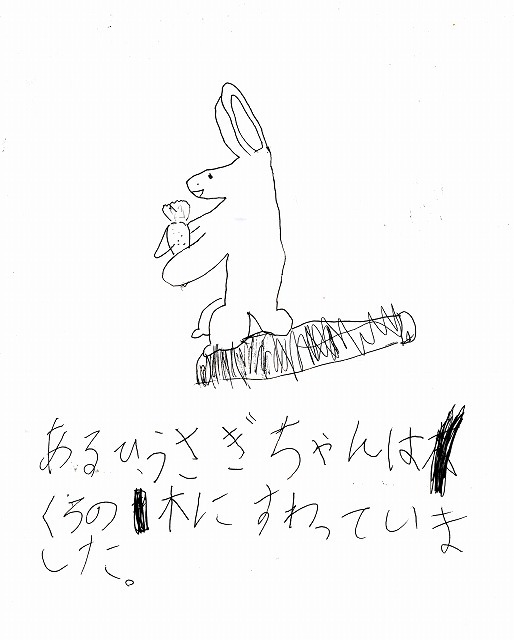 あるひ、うさぎちゃんは
くろの木にすわっていま
した。